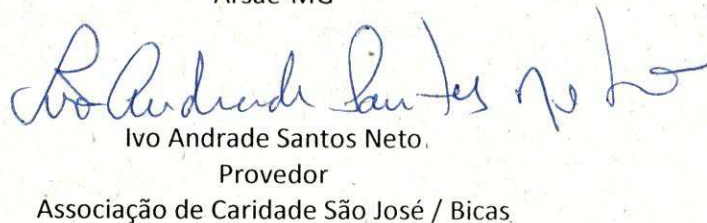 Arsae-MG
Ivo Andrade Santos Neto
Ivo Andrade Santos Neto
Provedor
Associação de Caridade São José / Bicas